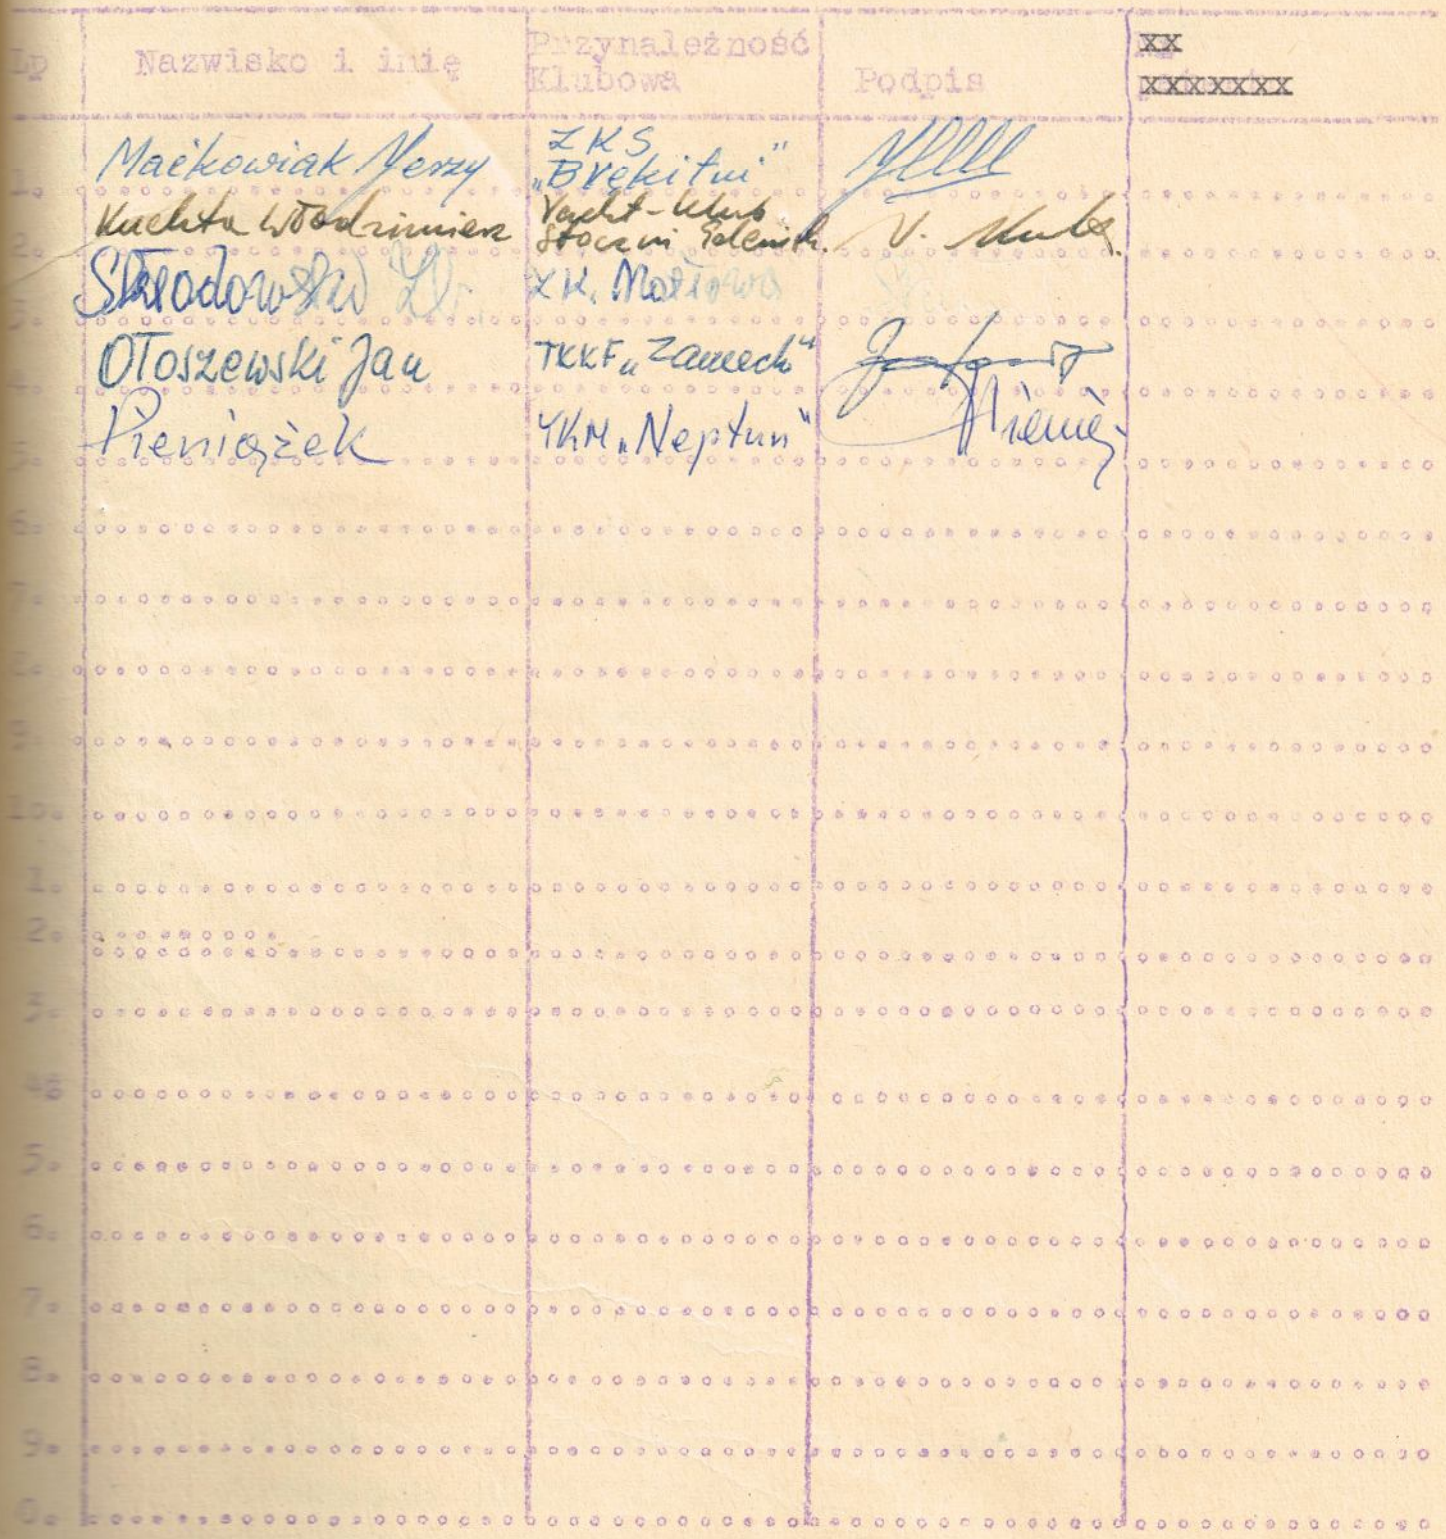 Lp Nazwisko i imię Przynależność Klubowa Podpis xx xxxxxxx
1. Maćkowiak Jerzy ZKS „Błękitni”
2. Kuchta Włodzimierz Yacht-Klub Stoczni
3. Skłodowski Z.K. Motława
4. Otoszewski Jan TKKF „Zamech”
5. Pieniążek YKM „Neptun”
6.
7.
8.
9.
10.
1.
2.
3.
4.
5.
6.
7.
8.
9.
0.